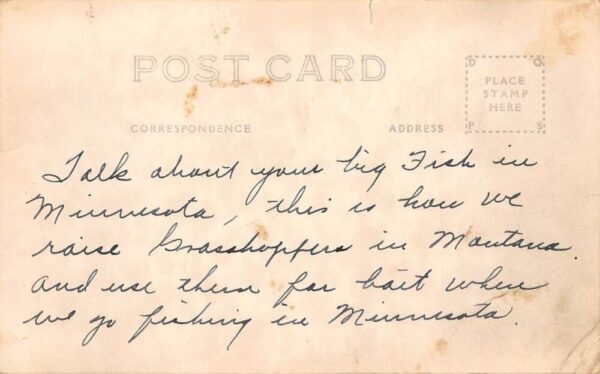 POST CARD
D O
PLACE
STAMP
HERE
P S
CORRESPONDENCE ADDRESS
Talk about your big Fish in
Minnesota, this is how we
raise Grasshoppers in Montana.
And use them for bait when
we go fishing in Minnesota.